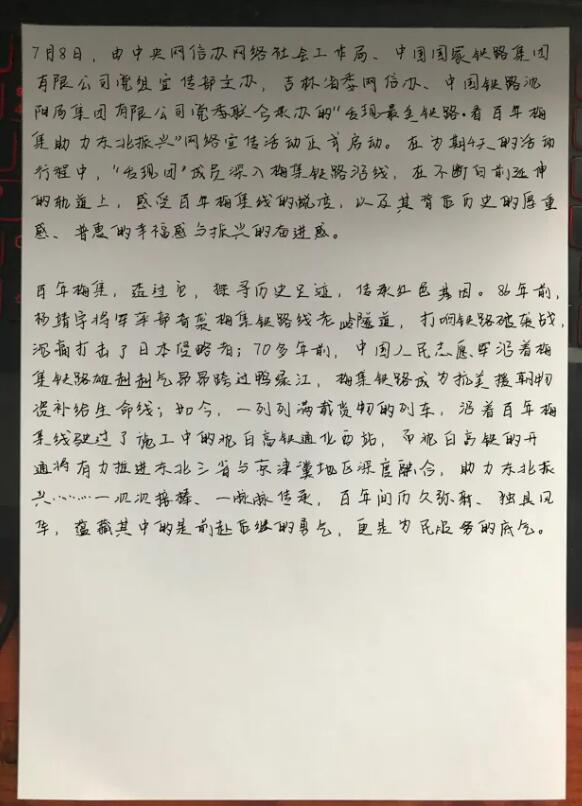 7月8日，由中央网信办网络社会工作局、中国国家铁路集团
有限公司党组宣传部主办，吉林省委网信办、中国铁路沈
阳局集团有限公司党委联合承办的“发现最美铁路·看百年梅
集助力东北振兴”网络宣传活动正式启动。在为期4天的活动
行程中，“发现团”成员深入梅集铁路沿线，在不断向前延伸
的轨道上，感受百年梅集线的蜕变，以及其背后历史的厚重
感、普惠的幸福感与振兴的奋进感。
百年梅集，透过它，探寻历史足迹，传承红色基因。86年前，
杨靖宇将军率部奇袭梅集铁路线老岭隧道，打响铁路破袭战，
沉痛打击了日本侵略者；70多年前，中国人民志愿军沿着梅
集铁路雄赳赳气昂昂跨过鸭绿江，梅集铁路成为抗美援朝物
资补给生命线；如今，一列列满载货物的列车，沿着百年梅
集线驶过了施工中的沈白高铁通化西站，而沈白高铁的开
通将有力推进东北三省与京津冀地区深度融合，助力东北振
兴………一次次接棒、一脉脉传承，百年间历久弥新、独具风
华，蕴藏其中的是前赴后继的勇气，更是为民服务的底气。